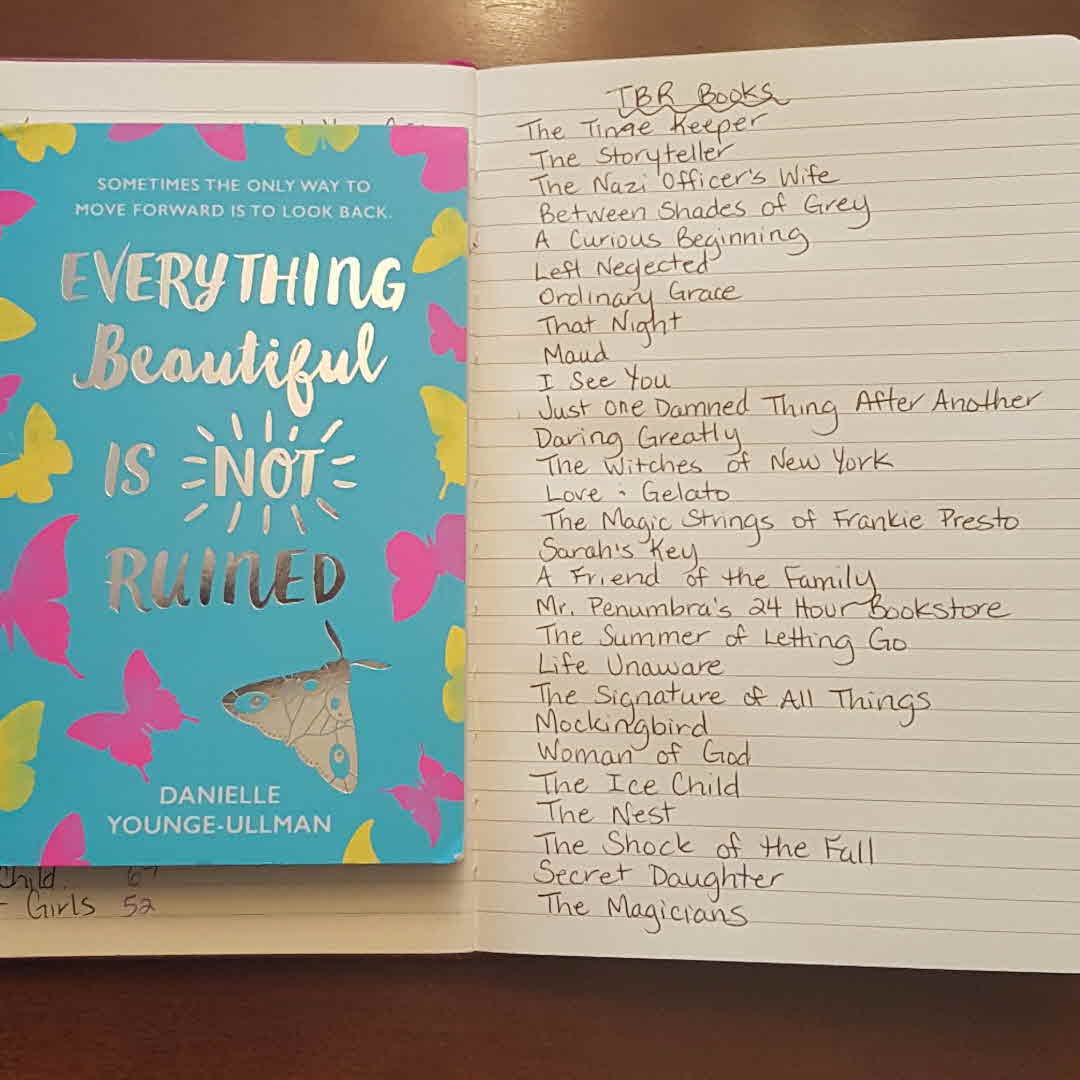 SOMETIMES THE ONLY WAY TO
MOVE FORWARD IS TO LOOK BACK.
EVERYTHING
Beautiful
IS NOT
RUINED
DANIELLE
YOUNGE-ULLMAN
Child
67
Girls 52
TBR Books
The Time Keeper
The Storyteller
The Nazi Officer's Wife
Between Shades of Grey
A Curious Beginning
Left Neglected
Ordinary Grace
That Night
Maud
I See You
Just One Damned Thing After Another
Daring Greatly
The Witches of New York
Love + Gelato
The Magic Strings of Frankie Presto
Sarah's Key
A Friend of the Family
Mr. Penumbra's 24 Hour Bookstore
The Summer of Letting Go
Life Unaware
The Signature of All Things
Mockingbird
Woman of God
The Ice Child
The Nest
The Shock of the Fall
Secret Daughter
The Magicians